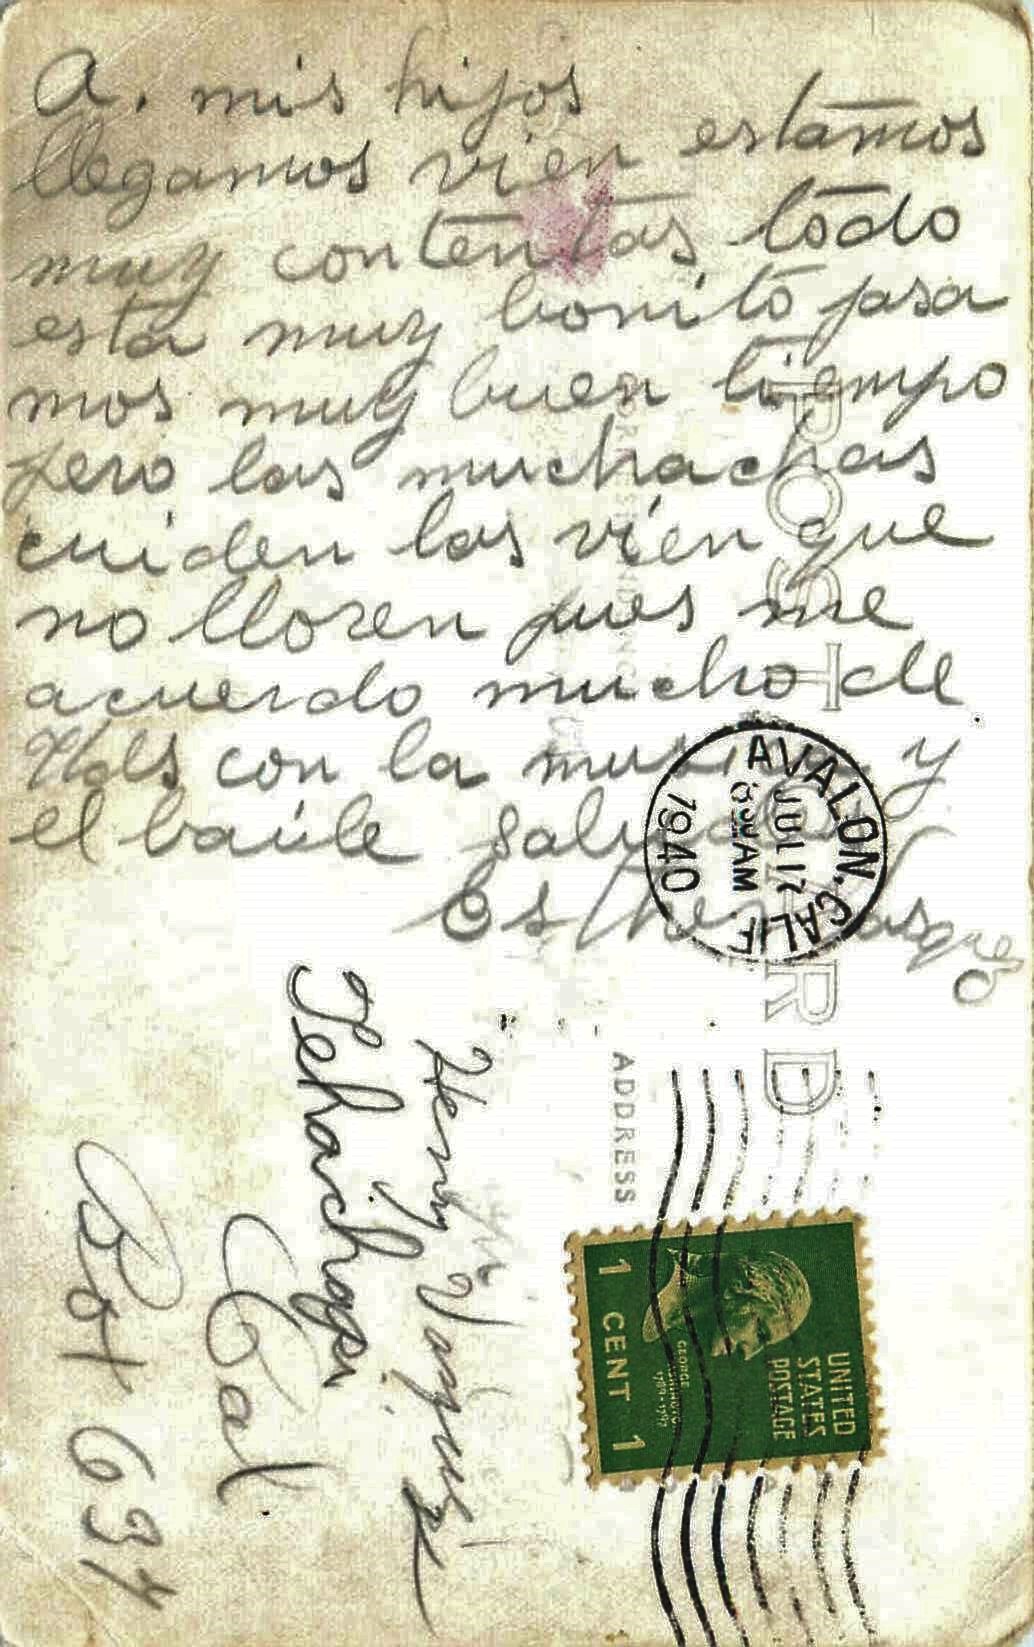 A. mis hijos
llegamos vien estamos
muy contentas todo
esta muy bonito pasa
mos muy buen tiempo
pero las muchachas
cuiden las vien que
no lloren pues me
acuerdo mucho de
Uds con la y
el baúle
Esther
POST CARD
CORRESPONDENCE
ADDRESS
AVALON, CALIF.
JUL 17
AM
1940
UNITED
STATES
POSTAGE
GEORGE
WASHINGTON
1789-1797
1 CENT 1
Henry Vasquez
Tehachapi
Cal.
Box 637